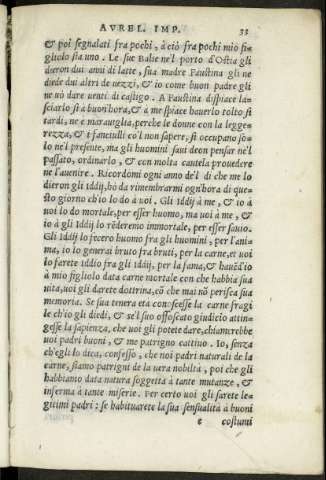 AVREL. IMP. 33
& poi segnalati fra pochi, à ciò fra pochi mio fi-
gliolo sia uno. Le sue Balie ne'l porto d'Ostia gli
dieron dui anni di latte, sua madre Faustina gli ne
diede dui altri de uezzi, & io come buon padre gli
ne uò dare uenti di castigo. A Faustina dispiace la-
sciarlo si à buon'hora, & à me spiace hauerlo tolto si
tardi, ne è marauiglia, perche le donne con la legge-
rezza, & i fanciulli co'l non sapere, si occupano so-
lo ne'l presente, ma gli huomini saui deon pensar ne'l
passato, ordinarlo, & con molta cautela prouedere
ne l'auenire. Ricordomi ogni anno de'l dì che me lo
dieron gli Iddij, hò da rimembrarmi ogn'hora di que-
sto giorno ch'io lo dò à uoi. Gli Iddij à me, & io à
uoi lo do mortale, per esser huomo, ma uoi à me, &
io à gli Iddij lo rēderemo immortale, per esser sauio.
Gli Iddij lo fecero huomo fra gli huomini, per l'ani-
ma, io lo generai bruto fra bruti, per la carne, et uoi
lo farete iddio fra gli Iddij, per la fama, & hauēd'io
à mio figliolo data carne mortale con che habbia sua
uita, uoi gli darete dottrina, cō che mai nō perisca sua
memoria. Se sua tenera età conoscesse la carne fragi
le ch'io gli diedi, & se'l suo offoscato giudicio attin-
gesse la sapienza, che uoi gli potete dare, chiamerebbe
uoi padri buoni, & me patrigno cattiuo. Io, senza
ch'egli lo dica, confesso, che noi padri naturali de la
carne, siamo patrigni de la uera nobiltà, poi che gli
habbiamo data natura soggetta à tante mutanze, &
inferma à tante miserie. Per certo uoi gli sarete le-
gitimi padri: se habituarete la sua sensualità à buoni
e costumi